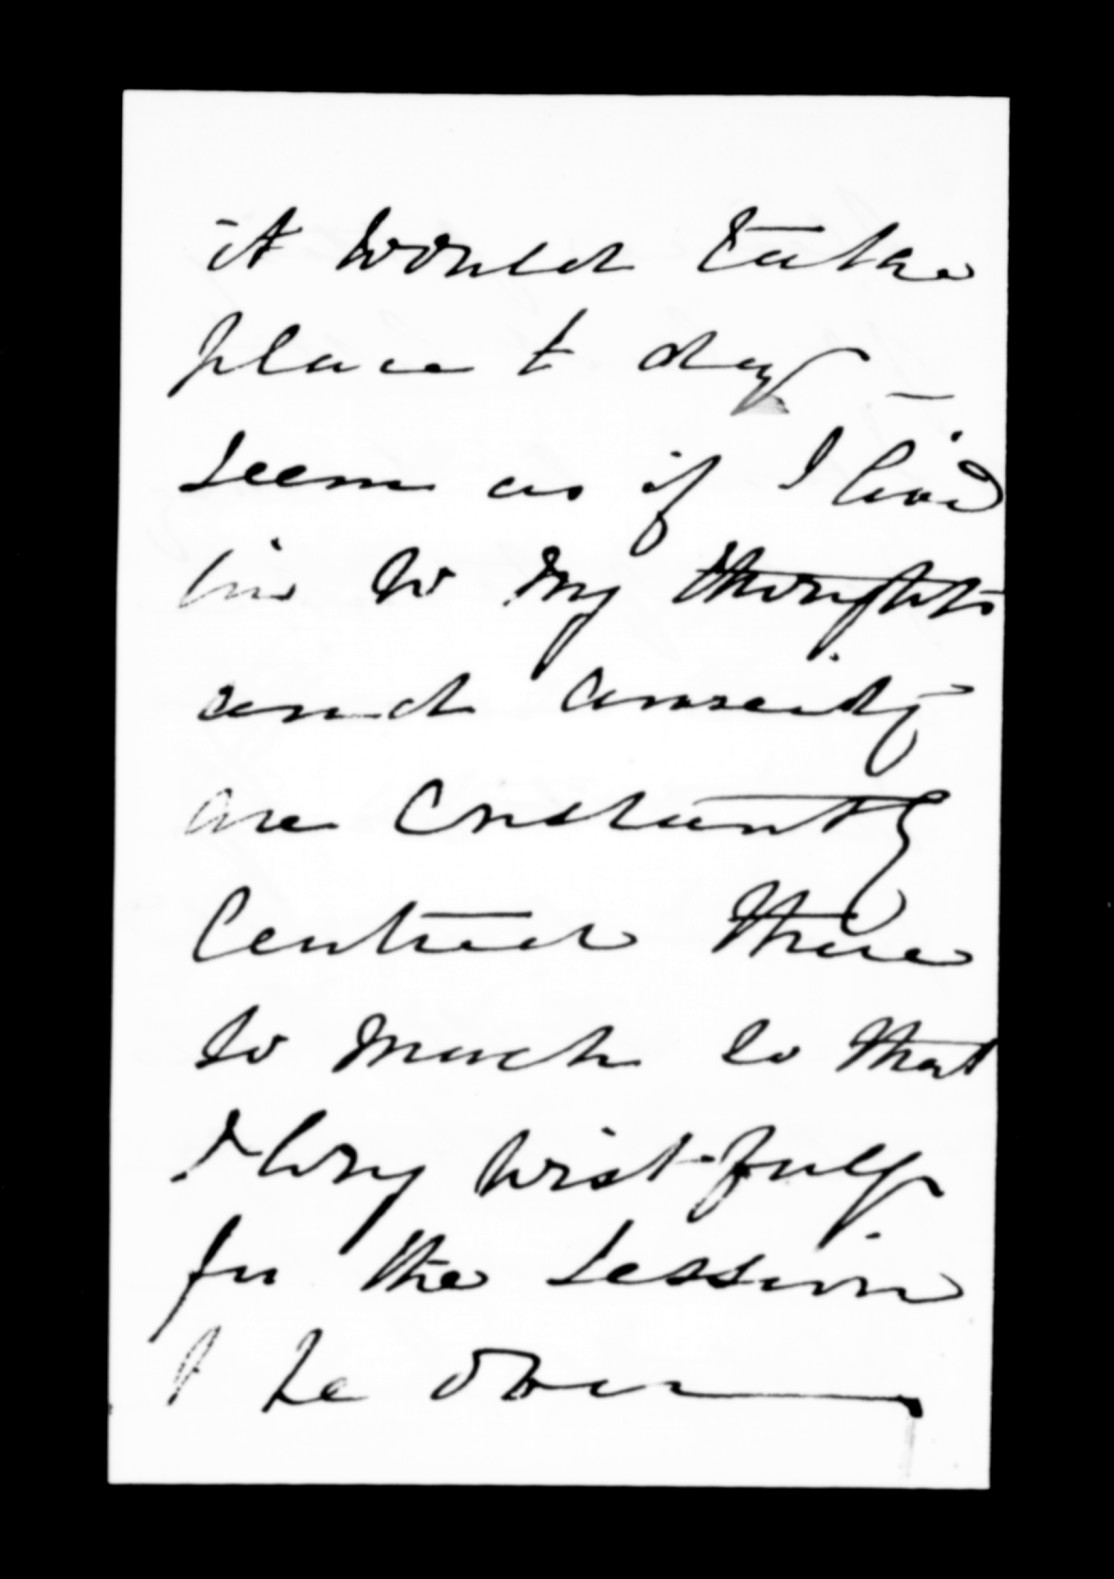 it would take
place to day —
seem as if I lived
in to my thoughts
and anxiety
are constantly
centred there
so much so that
I long wistfully
for the session
to be over